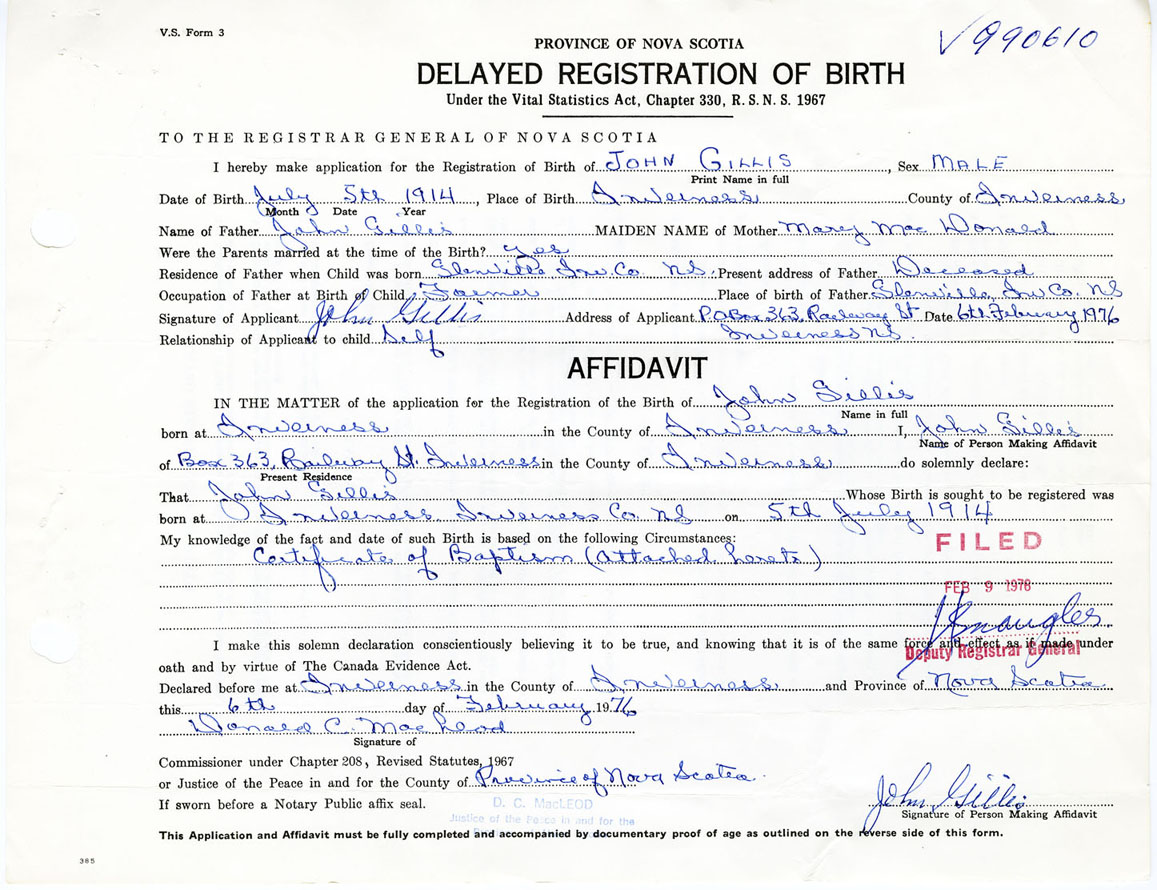 V.S. Form 3
V990610
PROVINCE OF NOVA SCOTIA
DELAYED REGISTRATION OF BIRTH
Under the Vital Statistics Act, Chapter 330, R. S. N. S. 1967
TO THE REGISTRAR GENERAL OF NOVA SCOTIA
I hereby make application for the Registration of Birth of JOHN GILLIS, Sex MALE
Print Name in full
Date of Birth July 5th 1914, Place of Birth Inverness County of Inverness
Month Date Year
Name of Father John Gillis MAIDEN NAME of Mother Mary Mac Donald
Were the Parents married at the time of the Birth? yes
Residence of Father when Child was born Glenville Inv. Co. NS. Present address of Father Deceased
Occupation of Father at Birth of Child Farmer Place of birth of Father Glenville, Inv Co. NS
Signature of Applicant John Gillis Address of Applicant P.O Box 363, Railway St Date 6th February 1976
Relationship of Applicant to child Self Inverness NS.
AFFIDAVIT
IN THE MATTER of the application for the Registration of the Birth of John Gillis
Name in full
born at Inverness in the County of Inverness I, John Gillis
Name of Person Making Affidavit
of Box 363, Railway St. Inverness in the County of Inverness do solemnly declare:
Present Residence
That John Gillis Whose Birth is sought to be registered was
born at Inverness Inverness Co. NS on 5th July 1914
My knowledge of the fact and date of such Birth is based on the following Circumstances:
Certificate of Baptism (attached hereto)
FILED
FEB 9 1976
I make this solemn declaration conscientiously believing it to be true, and knowing that it is of the same force and effect as if made under
Deputy Registrar General
oath and by virtue of The Canada Evidence Act.
Declared before me at Inverness in the County of Inverness and Province of Nova Scotia
this 6th day of February 1976
Donald C. MacLeod
Signature of
Commissioner under Chapter 208, Revised Statutes, 1967
or Justice of the Peace in and for the County of Province of Nova Scotia.
If sworn before a Notary Public affix seal.
D. C. MacLEOD
Justice of the Peace in and for the
John Gillis
Signature of Person Making Affidavit
This Application and Affidavit must be fully completed and accompanied by documentary proof of age as outlined on the reverse side of this form.
385